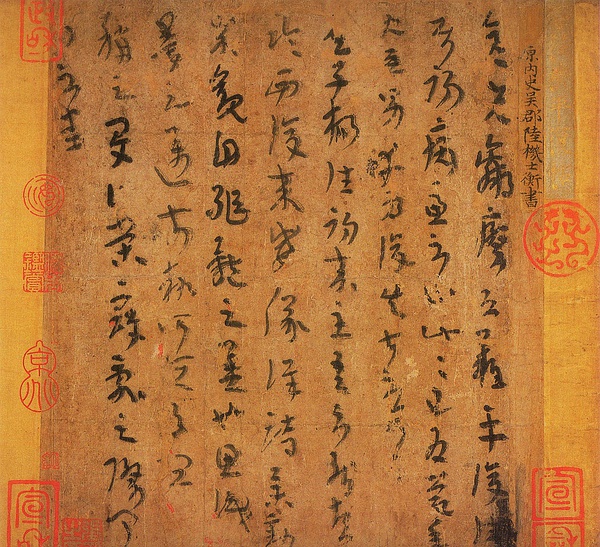 原內史吳郡陸機士衡書
先羸瘵恐難平復
初病慮不止此此已為慶
唯男幸為復失前憂耳
吳子楊往初來主吾不能
臨西復來威儀詳跱舉動
成觀自軀體之美也思識
量之邁前執所恒有宜
稱之夏伯榮寇亂之際聞
問不悉